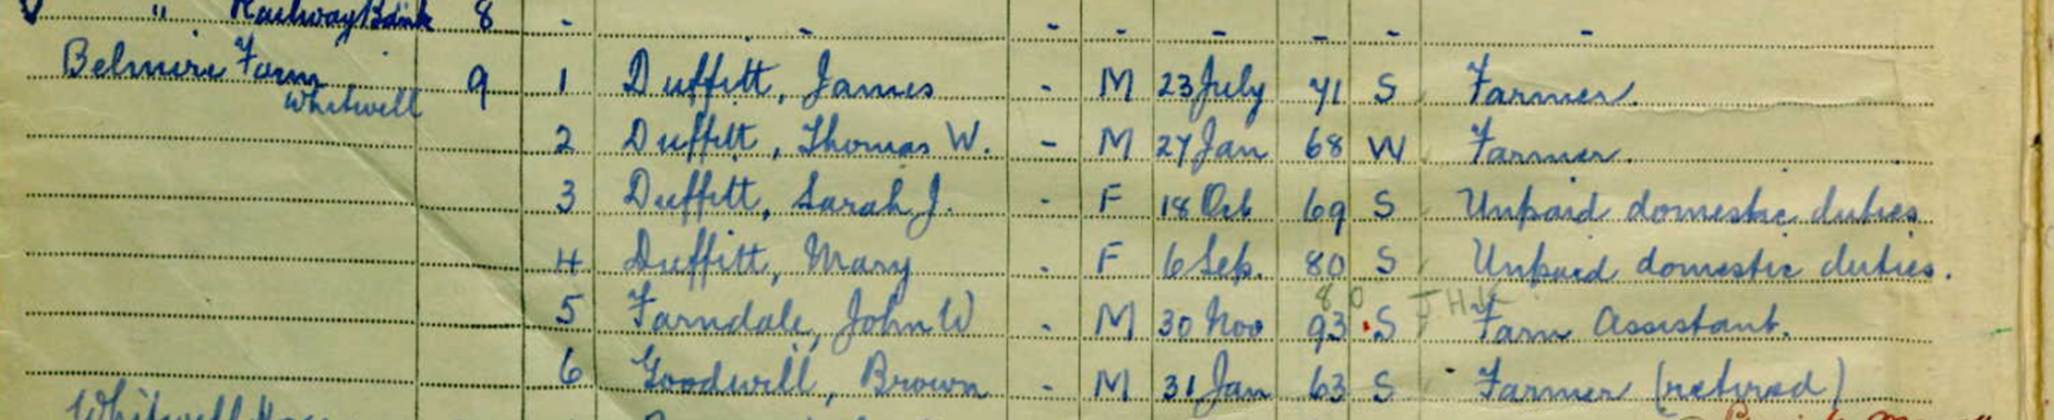 " Railway Bank 8 - - - - - - - -
Belmire Farm 9 1 Duffitt, James - M 23 July 71 S Farmer.
Whitwell
2 Duffitt, Thomas W. - M 27 Jan 68 W Farmer.
3 Duffitt, Sarah J. - F 18 Oct 69 S Unpaid domestic duties
4 Duffitt, Mary - F 6 Sep. 80 S Unpaid domestic duties.
80
5 Farndale, John W - M 30 Nov 93 S Farm Assistant.
6 Goodwill, Brown - M 31 Jan 63 S Farmer (retired)
Whitwell